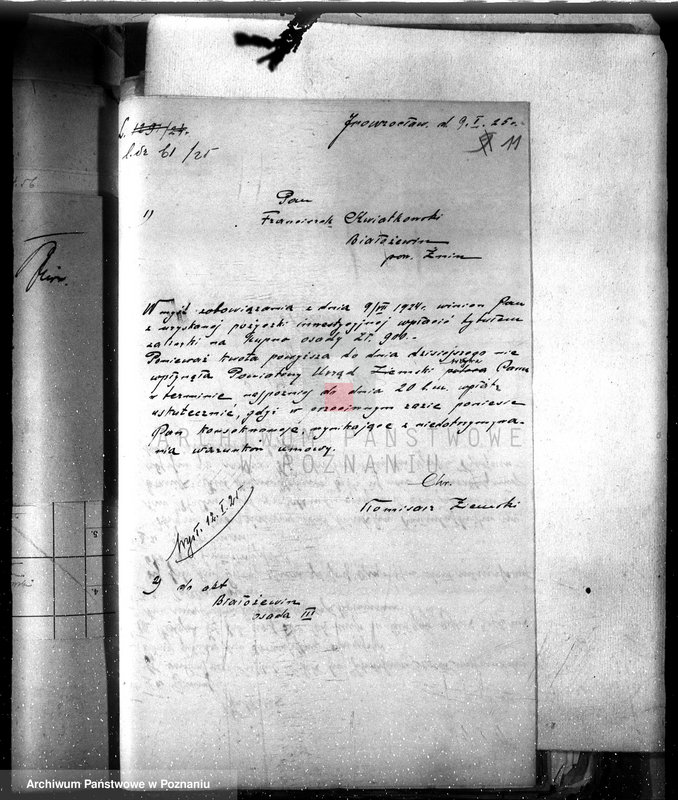 Inowrocław. d. 9.I.25r.
11
L. 129/24.
l.dz 61/25
1)
Pan
Franciszek Kwiatkowski
Białożewin
pow. Żnin
W myśl zobowiązania z dnia 9/VII 1924r. winien Pan
z uzyskanej pożyczki inwestycyjnej wpłacić tytułem
zaliczki na kupno osady Zł. 900.-
Ponieważ kwota powyższa do dnia dzisiejszego nie
wpłynęła Powiatowy Urząd Ziemski wzywa Pana
w terminie najpóźniej do dnia 20 b.m. wpłatę
uskutecznić, gdyż w przeciwnym razie poniesie
Pan konsekwencje, wynikające z niedotrzymywa-
nia warunków umowy.
Okr.
Komisarz Ziemski
Wysł. 12.I.25
2) do akt
Białożewin
osada III
ARCHIWUM PAŃSTWOWE
W POZNANIU
Archiwum Państwowe w Poznaniu